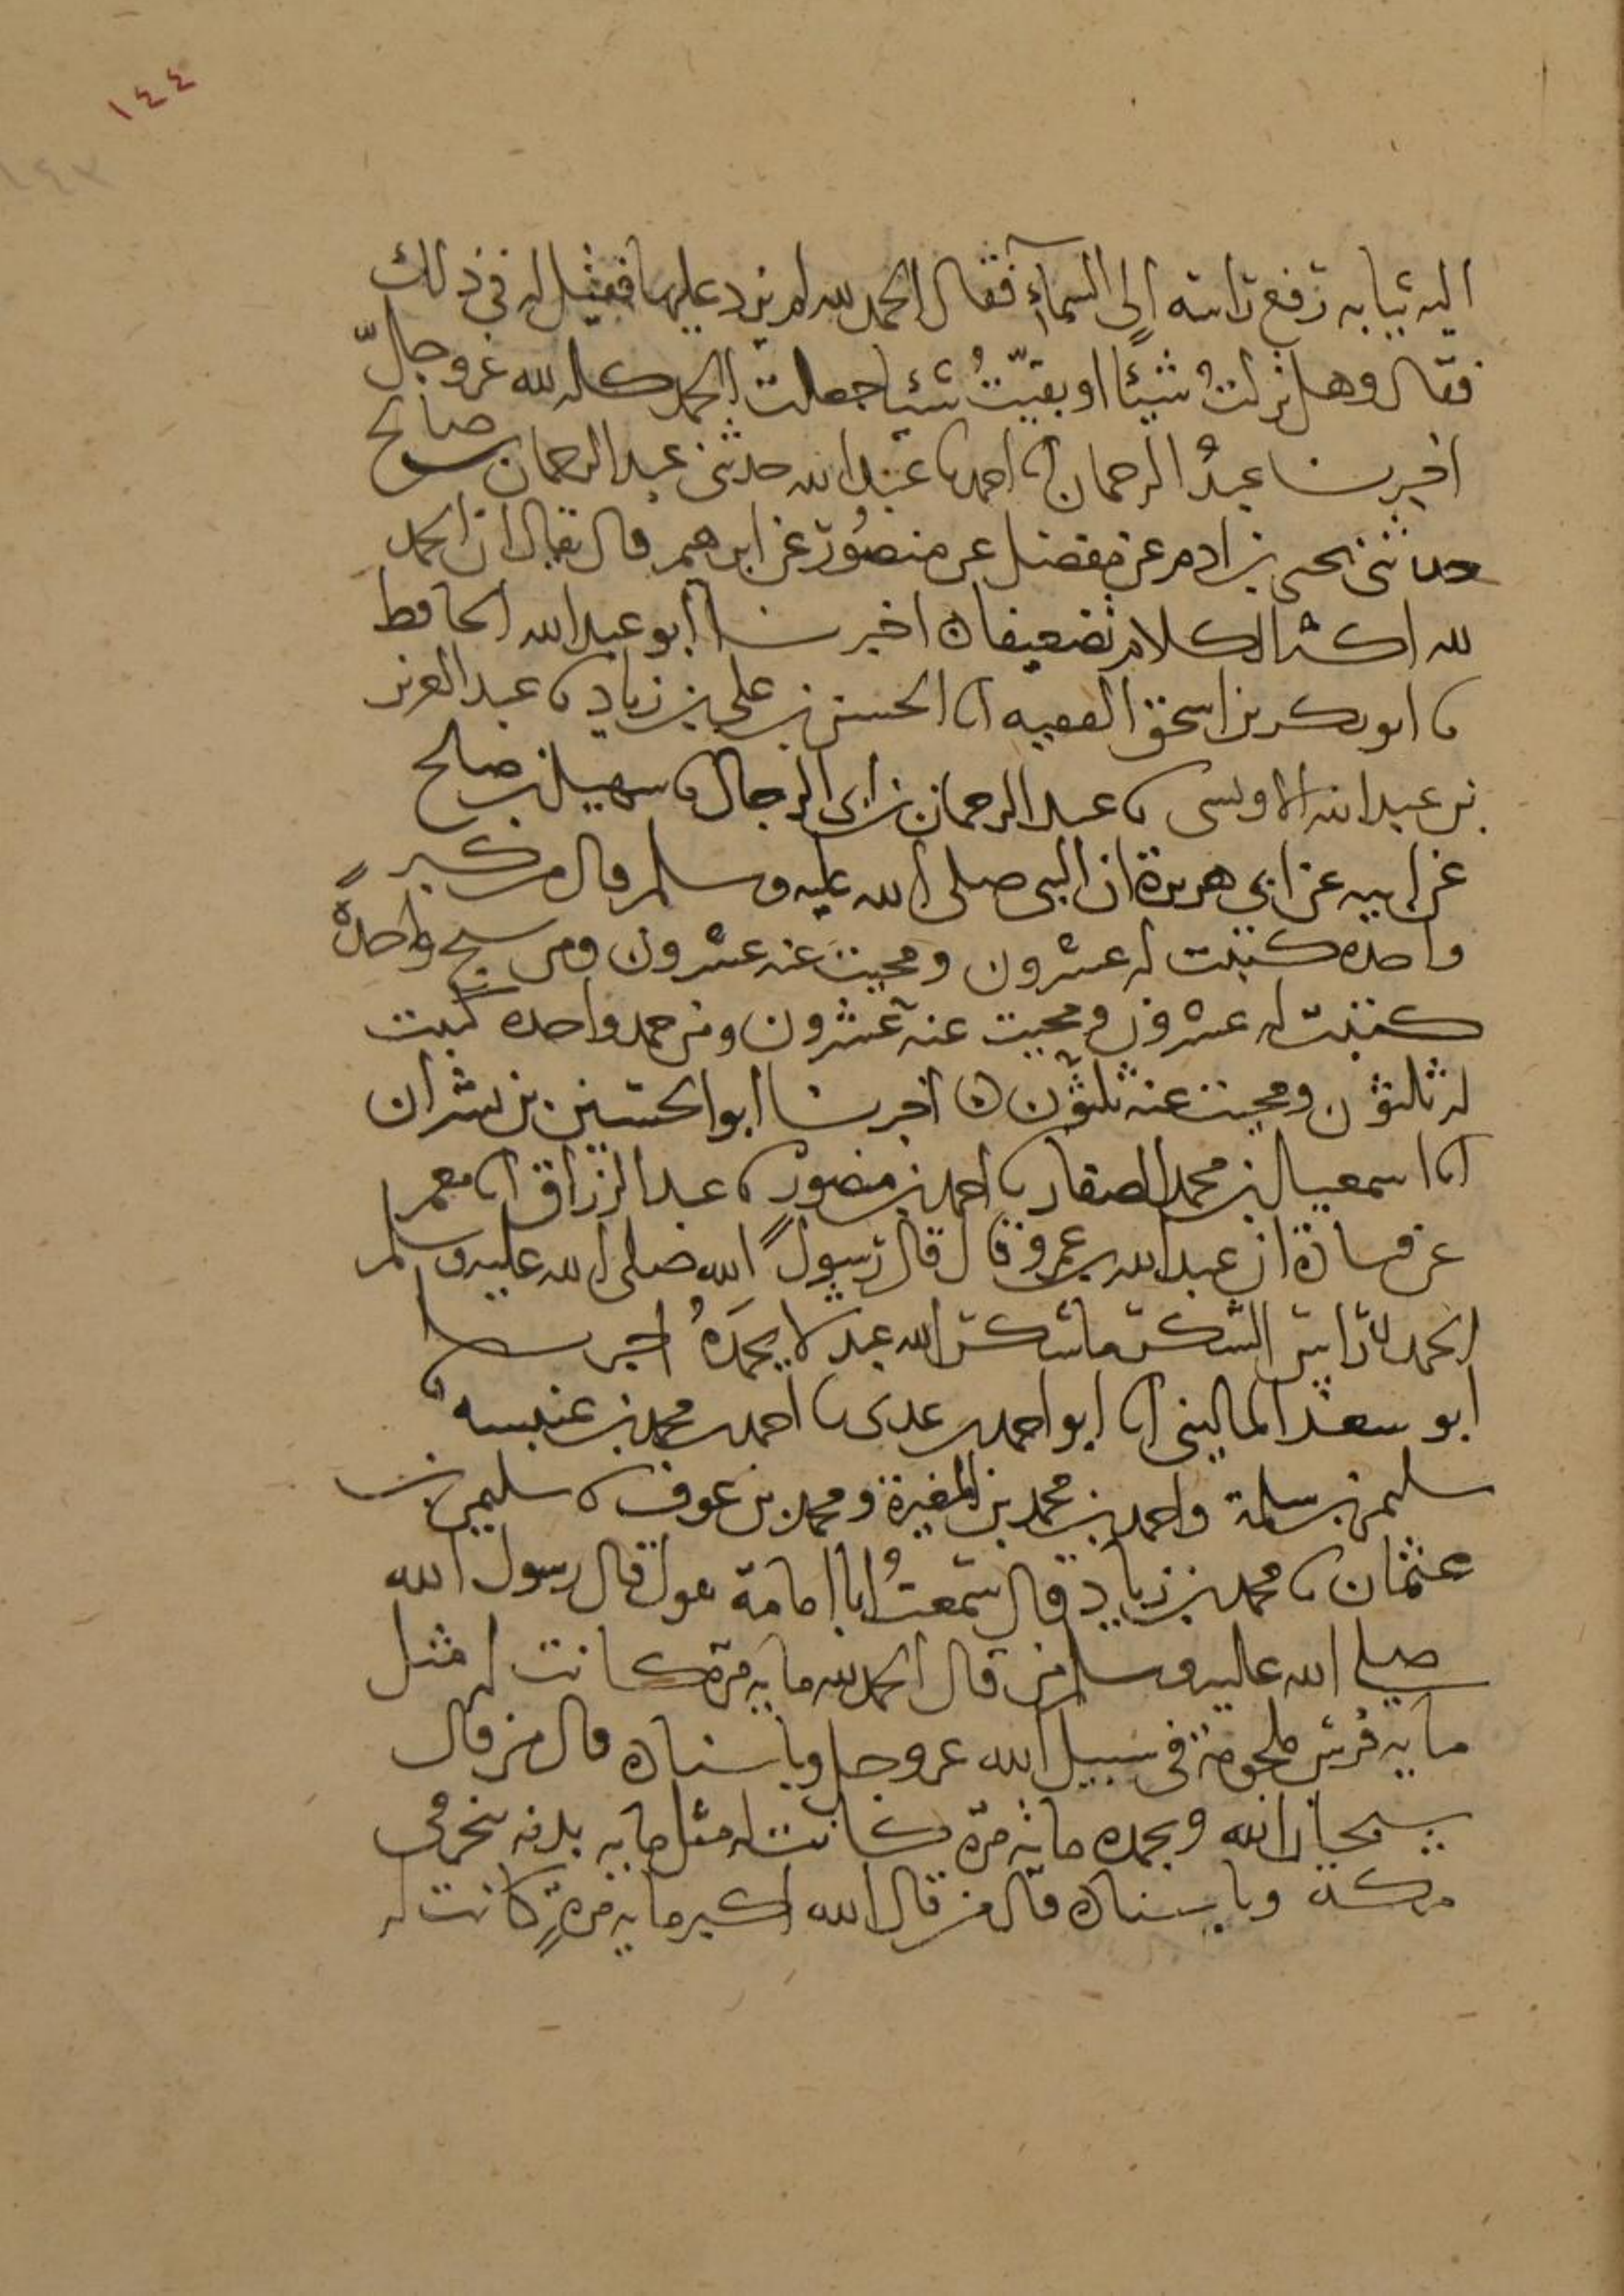 ١٤٤
١٤٣
اليه ثيابه رفع راسه إلى السمآء فقال الحمد لله لم يزد عليها فقيل له في ذلك
فقال وهل تركتُ شيئًا او بقيّتُ شيئا جعلت الحمد كله لله عز وجلّ
اخبرنا عبدُ الرحمان انا احمد نا عبد الله حدثنى عبد الرحمان بن صالح
حدثنى يحيى بن ادم عن مفضل عن منصُور عن ابرهيم قال يقال ان الحمد
لله اكثر الكلام تضعيفا ن اخبرنا ابو عبد الله الحافظ
نا ابو بكر بن اسحق الفقيه انا الحسن بن على بن زياد نا عبد العزيز
بن عبد الله الاويسى نا عبد الرحمان بن ابى الرجال نا سهيل بن صالح
عن ابيه عن ابى هريرة ان النبى صلى الله عليه وسلم قال من كبر
واحده كتبت له عشرون ومحيت عنه عشرون ومن سبح واحدةً
كتبت له عشرون ومحيت عنه عشرون ومن حمد واحده كتبت
له ثلثون ومحيت عنه ثلثون ن اخبرنا ابو الحسين بن بشران
انا اسمعيل بن محمد الصفار نا احمد بن منصور نا عبد الرزاق انا معمر
عن قتادة ان عبد الله بن عمرو قال قال رسول الله صلى الله عليه وسلم
الحمد راس الشكر ما شكر الله عبد لا يحمَدهُ اخبرنا
ابو سعد المالينى انا ابو احمد بن عدى نا احمد بن محمد بن عنبسه نا
سليمن بن سلمة واحمد بن محمد بن المغيرة ومحمد بن عوف نا سليمن بن
عثمان نا محمد بن زياد قال سمعتُ ابا امامة يقول قال رسول الله
صلى الله عليه وسلم من قال الحمد لله مايه مرة كانت له مثل
مايه فرس ملجومة في سبيل الله عز وجل وباسناده قال من قال
سبحان الله وبحمده مائه مرة كانت له مثل مايه بدنه تنحر فى
مكة وباسناده قال من قال الله اكبر مايه مرةٍ كانت له